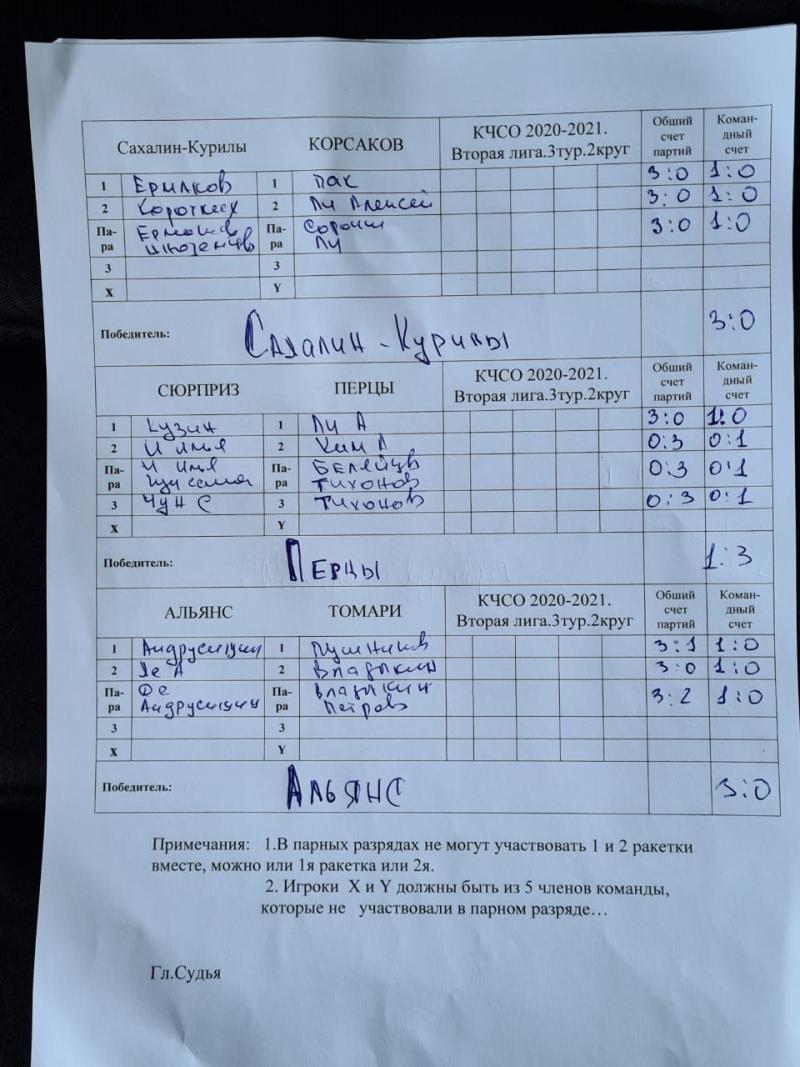 Сахалин-Курилы КОРСАКОВ КЧСО 2020-2021. Вторая лига.3тур.2круг Обший счет партий Коман-дный счет
1 Ермаков 1 Пак 3:0 1:0
2 Коротких 2 Ли Алексей 3:0 1:0
Па-ра Ермаков Иноземцев Па-ра Сорочин Ли 3:0 1:0
3 3
X Y
Победитель: Сахалин-Курилы 3:0
СЮРПРИЗ ПЕРЦЫ КЧСО 2020-2021. Вторая лига.3тур.2круг Обший счет партий Коман-дный счет
1 Кузин 1 Ли А 3:0 1:0
2 И Илья 2 Ким А 0:3 0:1
Па-ра И Илья Па-ра Беляйцев Тихонов 0:3 0:1
3 Чун С 3 Тихонов 0:3 0:1
X Y
Победитель: Перцы 1:3
АЛЬЯНС ТОМАРИ КЧСО 2020-2021. Вторая лига.3тур.2круг Обший счет партий Коман-дный счет
1 Андрусишин 1 Пушников 3:1 1:0
2 Де А 2 Владыкин 3:0 1:0
Па-ра Де Андрусишин Па-ра Владыкин Петров 3:2 1:0
3 3
X Y
Победитель: Альянс 3:0
Примечания: 1.В парных разрядах не могут участвовать 1 и 2 ракетки
вместе, можно или 1я ракетка или 2я.
2. Игроки X и Y должны быть из 5 членов команды,
которые не участвовали в парном разряде…
Гл.Судья